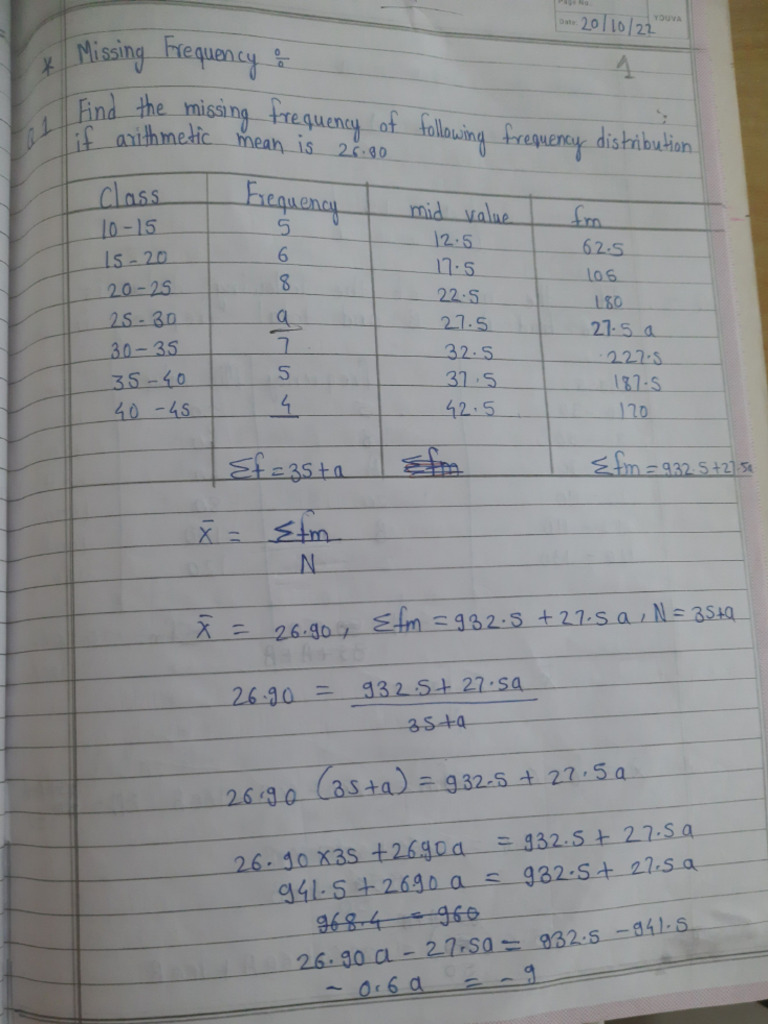 Page No.
Date: 20/10/22 YOUVA
1
* Missing Frequency :
Q.1 Find the missing frequency of following frequency distribution
if arithmetic mean is 26.90
Class Frequency mid value fm
10-15 5 12.5 62.5
15-20 6 17.5 105
20-25 8 22.5 180
25-30 a 27.5 27.5 a
30-35 7 32.5 227.5
35-40 5 37.5 187.5
40-45 4 42.5 170
Σf = 35+a Σfm Σfm = 932.5+27.5a
x̄ = Σfm
N
x̄ = 26.90, Σfm = 932.5 + 27.5 a, N = 35+a
26.90 = 932.5 + 27.5a
35+a
26.90 (35+a) = 932.5 + 27.5a
26.90 × 35 + 2690a = 932.5 + 27.5a
941.5 + 2690 a = 932.5 + 27.5a
968.4 = 960
26.90 a - 27.5a = 932.5 - 941.5
- 0.6 a = - 9